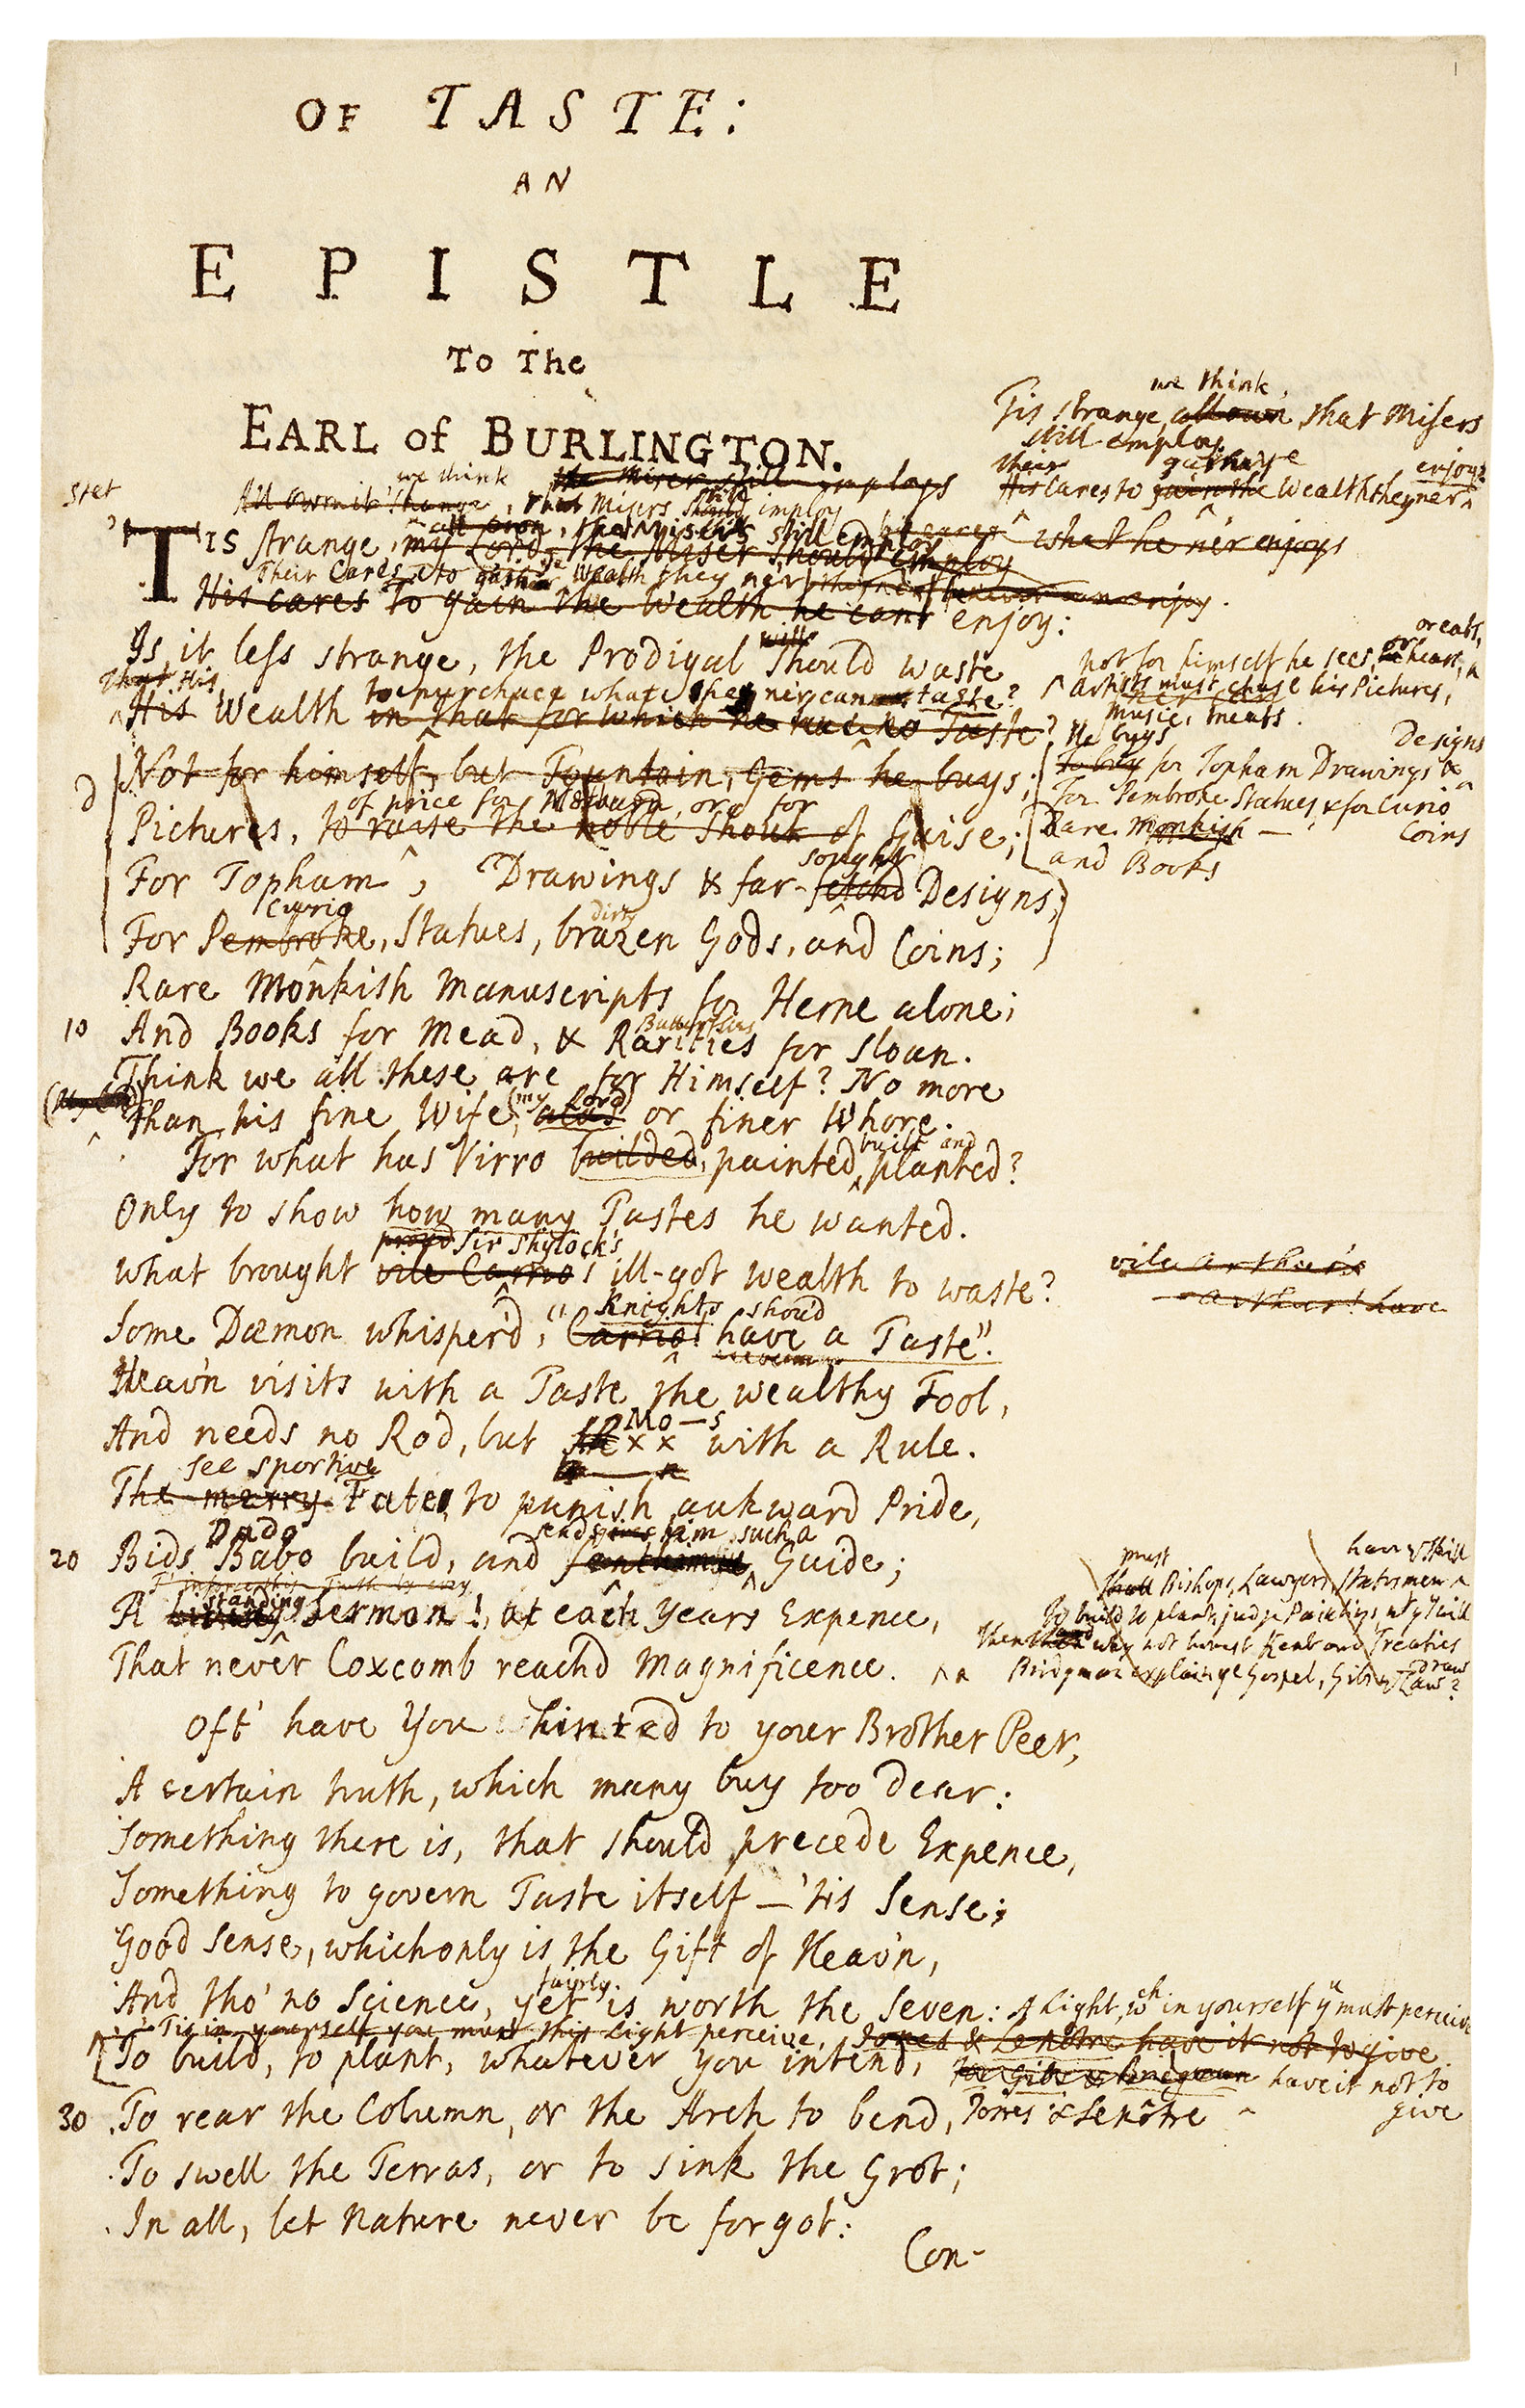 OF TASTE:
AN
EPISTLE
To The
EARL of BURLINGTON.
we think
Tis strange all own that Misers
still employ
their gather ye enjoy
His Cares to gain the Wealth they ner
we think the Miser still employs
Stet
All own it strange, that Misers still should imploy
all own, that Misers still employ his cares what he ne'r enjoys
'TIS strange, my Lord, the Miser should employ
Their Cares to gather ye Wealth they ner
His cares To gain the Wealth he cant enjoy:
will
Is it less strange, the Prodigal should waste
That His to purchace what he ne'r can taste?
His Wealth in that for which he has no Taste?
or eats,
not for himself he sees, or hears,
Artists must chuse his Pictures,
Music, meats.
D
Not for himself, but Fountain, Gems he buys;
He buys Designs
To buy for Topham Drawings &
of price for or for
Pictures, to raise the noble Shout of Guise;
For Pembroke Statues, & for Curio
Rare Monkish — Coins
and Books
sought
For Topham, Drawings & far-fetchd Designs;
Curio dirty
For Pembroke, Statues, brazen Gods, and Coins;
Rare Monkish Manuscripts for Herne alone;
Butterflies
10 And Books for Mead, & Rarities for Sloan.
Think we all these are for Himself? No more
(My Lord) (my Lord)
Than his fine Wife, alas or finer Whore.
built and
For what has Virro builded, painted, planted?
Only to show how many Tastes he wanted.
proud Sir Shylock's
What brought vile Carrio's ill-got wealth to waste?
vile Arthur's
Arthur! have
Knights shou'd
Some Dæmon whisper'd, "Carrio! have a Taste".
Heav'n visits with a Taste the wealthy Fool,
Mo—s
And needs no Rod, but xx with a Rule.
See sportive
The merry Fate, to punish aukward Pride,
Dado sends him such a
20 Bids Babo build, and sent him such Guide;
standing
A living Sermon! at each Years Expence,
That never Coxcomb reachd Magnificence.
must have Skill
Shall Bishops, Lawyers, Statesmen
To build to plant, judge Paintings, wt yu will
Then why not Kent our Treaties
draw
Bridgman explain ye Gospel, Gibs ye Law?
Oft' have You hinted to your Brother Peer,
A certain truth, which many buy too dear:
Something there is, that should precede Expence,
Something to govern Taste itself—'tis Sense;
Good Sense, which only is the Gift of Heav'n,
fairly
And tho' no Science, yet is worth the Seven:
A Light, wch in yourself yu must perceive
'Tis in yourself you must this Light perceive,
Jones & Le Nôtre have it not to give
To build, to plant, whatever you intend,
have it not to
give
30 To rear the Column, or the Arch to bend,
Jones & Le nôtre
To swell the Terras, or to sink the Grot;
In all, let Nature never be forgot:
Con-